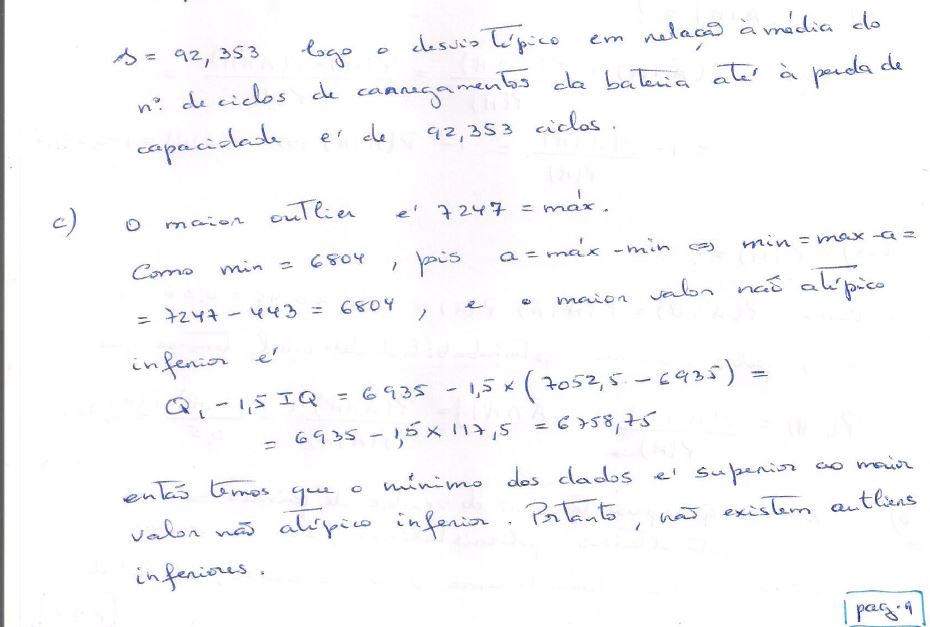 s = 92,353 logo o desvio típico em relação à média do
nº. de ciclos de carregamentos da bateria até à perda de
capacidade é de 92,353 ciclos.
c) O maior outlier é 7247 = máx.
Como min = 6804, pois a = máx - min ⇔ min = max - a =
= 7247 - 443 = 6804, e o maior valor não atípico
inferior é
Q₁ - 1,5 IQ = 6935 - 1,5 × (7052,5 - 6935) =
= 6935 - 1,5 × 117,5 = 6758,75
então temos que o mínimo dos dados é superior ao maior
valor não atípico inferior. Portanto, não existem outliers
inferiores.
pag. 9